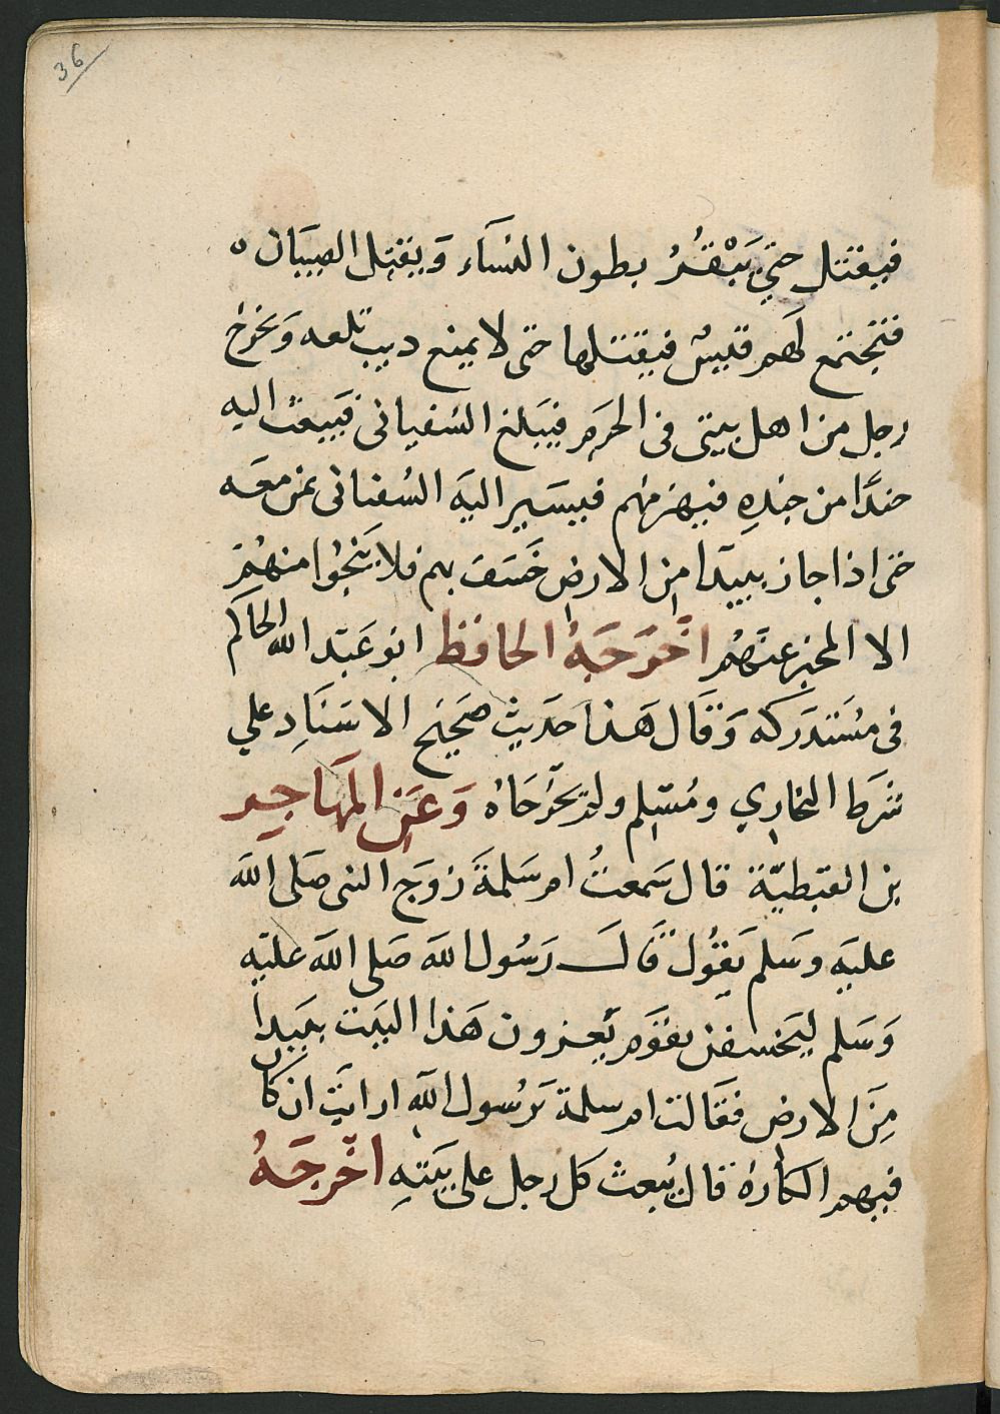 36
فيقتل حتي يَبْقُرُ بطون النسَاء وَيقتل الصبيَان ه
فتجتمع لَهم قيسٌ فيقتلها حتى لا يمنع ديب تلعه وَيخرج
رجل من اهل بيتى فى الحَرَم فيبلغ السُفيانى فيَبعَث اليه
جندًا من جندِهِ فيهزمهم فيسَير اليهَ السُفيانى بمن معَه
حتى اذا جاز ببيدَا من الارض خَسَفَ بهم فلا يَنجُوا منهُم
الا المخبر عنهُم اخرَجَهُ الحافظ ابو عَبد الله الحاكم
فى مسُتَدرَكه وَقال هَذا حَديث صَحيح الاسنَادِ علي
شَرط البخاري ومُسلم ولم يخرجَاهُ وَعَن المهَاجِر
بن القبطيّة قال سَمعتُ ام سَلمةَ زوَج النبى صَلى الله
عليَه وسَلم يَقُول قَالَ رَسُول الله صَلى الله عليَه
وَسَلم ليَخسفن بقَوم يَغزون هَذا البيَت ببَيدا
مِنَ الارض فقَالت ام سلمة يرَسُول الله ارايَت ان كان
فيهم الكاره قال يُبعث كل رجل على نيَتهِ اخرجَهُ